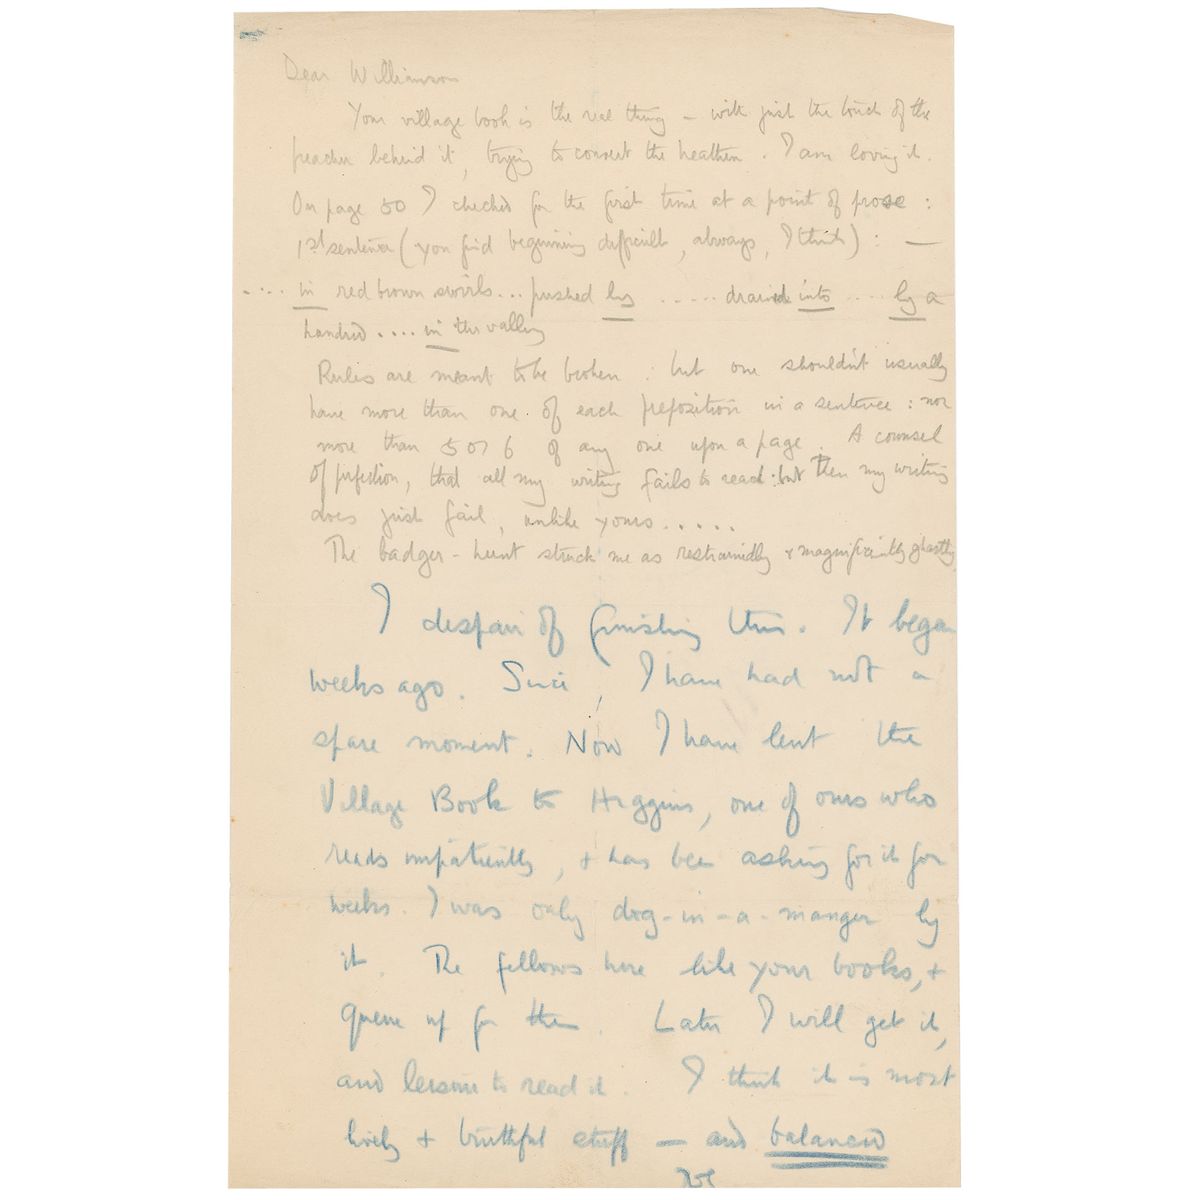 Dear Williamson
Your village book is the real thing – with just the touch of the
preacher behind it, trying to convert the heathen. I am loving it.
On page 50 I checked for the first time at a point of prose:
1st sentence (you find beginning difficult, always, I think): —
.... in red brown swirls... pushed by ..... drained into .... by a
hundred .... in the valley
Rules are meant to be broken: but one shouldn't usually
have more than one of each preposition in a sentence: nor
more than 5 or 6 of any one upon a page. A counsel
of perfection, that all my writing fails to reach: but then my writing
does just fail, unlike yours.....
The badger-hunt struck me as restrainedly & magnificently ghastly
I despair of finishing this. It began
weeks ago. Since, I have had not a
spare moment. Now I have lent the
Village Book to Higgins, one of ours who
reads impatiently, & has been asking for it for
weeks. I was only dog-in-a-manger by
it. The fellows here like your books, &
queue up for them. Later I will get it,
and leisure to read it. I think it is most
lively & truthful stuff — and balanced